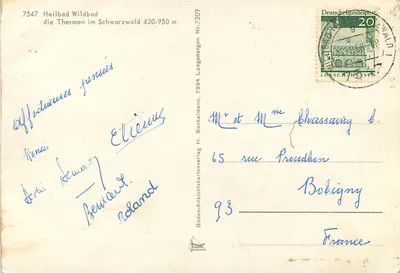 7547 Heilbad Wildbad
die Thermen im Schwarzwald 430-950 m.
Affectueuses pensées
Etienne
Bernard
Roland
Baden-Ansichtskartenverlag H. Bockelmann, 7994 Langenargen Nr. 7309
Deutsche Bundespost
20
LORSCH/HESSEN
Mr et Mme Chassaing C.
65 rue Proudhon
Bobigny
93
France